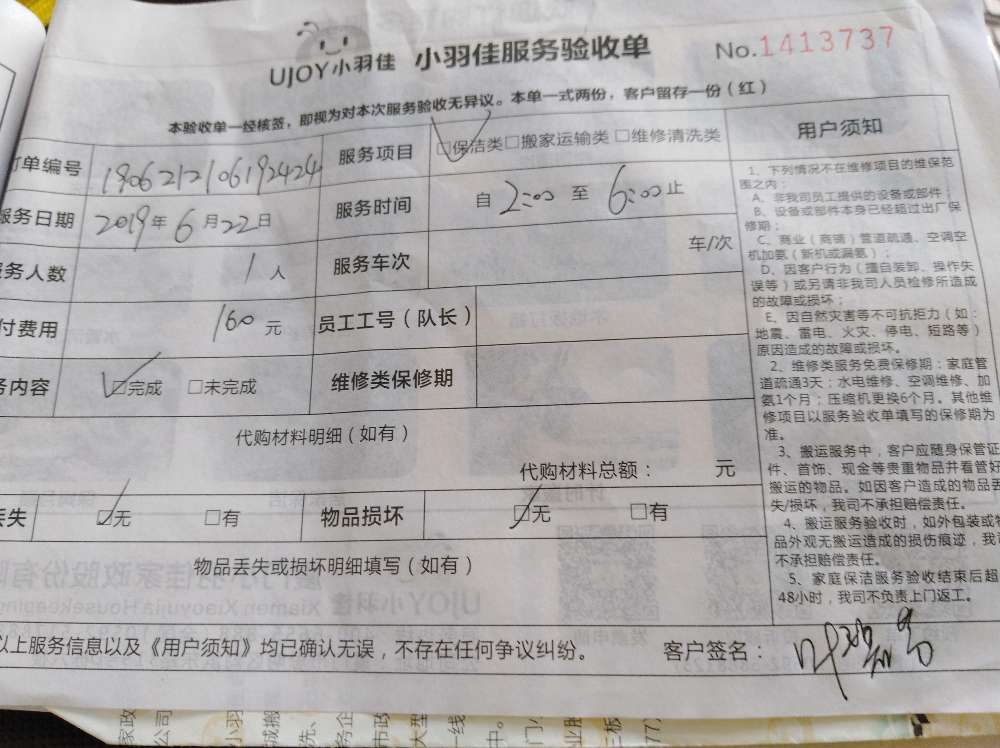 UJOY小羽佳 小羽佳服务验收单 No.1413737
本验收单一经核签，即视为对本次服务验收无异议。本单一式两份，客户留存一份（红）
订单编号 1906212106192424 服务项目 □保洁类□搬家运输类 □维修清洗类
服务日期 2019年 6 月22日 服务时间 自 2:00 至 6:00 止
服务人数 1 人 服务车次 车/次
付费用 160 元 员工工号（队长）
务内容 □完成 □未完成 维修类保修期
代购材料明细（如有）
代购材料总额： 元
丢失 □无 □有 物品损坏 □无 □有
物品丢失或损坏明细填写（如有）
用户须知
1、下列情况不在维修项目的维保范
围之内：
A、非我司员工提供的设备或部件；
B、设备或部件本身已经超过出厂保
修期；
C、商业（商铺）管道疏通、空调空
机加氨（新机或漏氨）；
D、因客户行为（擅自装卸、操作失
误等）或另请非我司人员检修所造成
的故障或损坏；
E、因自然灾害等不可抗拒力（如：
地震、雷电、火灾、停电、短路等）
原因造成的故障或损坏。
2、维修类服务免费保修期：家庭管
道疏通3天；水电维修、空调维修、加
氨1个月；压缩机更换6个月。其他维
修项目以服务验收单填写的保修期为
准。
3、搬运服务中，客户应随身保管证
件、首饰、现金等贵重物品并看管好
搬运的物品。如因客户造成的物品丢
失/损坏，我司不承担赔偿责任。
4、搬运服务验收时，如外包装或物
品外观无搬运造成的损伤痕迹，我司
不承担赔偿责任。
5、家庭保洁服务验收结束后超
48小时，我司不负责上门返工。
以上服务信息以及《用户须知》均已确认无误，不存在任何争议纠纷。 客户签名：